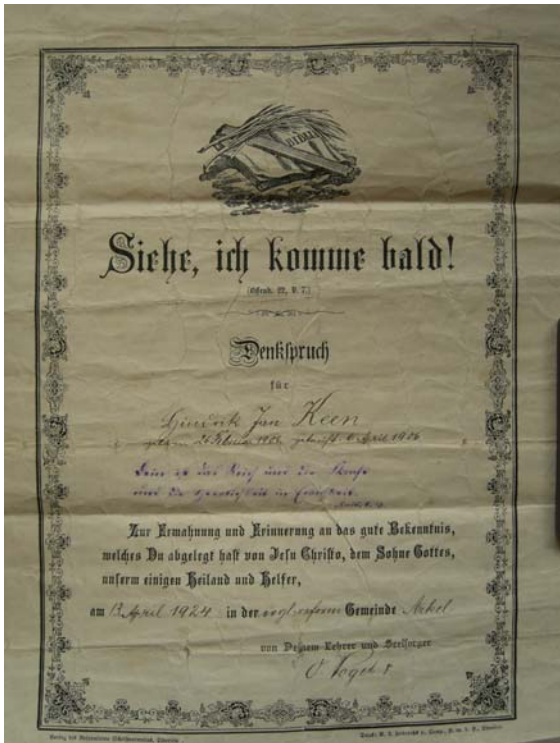 BIBLIA
Siehe, ich komme bald!
(Offenb. 22, V. 7.)
Denkspruch
für
Hindrik Jan Keen
geb. am 26 Februar 1906 getauft April 1906
Dein ist das Reich und die Kraft
und die Herrlichkeit in Ewigkeit.
Zur Ermahnung und Erinnerung an das gute Bekenntnis,
welches Du abgelegt hast von Jesu Christo, dem Sohne Gottes,
unserm einigen Heiland und Helfer,
am 13 April 1924 in der evgl-reform Gemeinde Arkel
von Deinem Lehrer und Seelsorger
Verlag des Reformierten Schriftenvereins,
Druck: